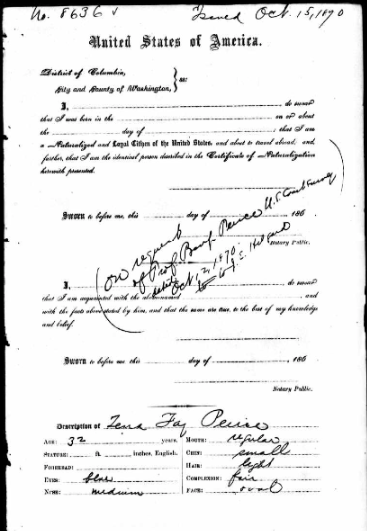 No. 8636 Issued Oct. 15, 1870
United States of America.
District of Columbia,
City and County of Washington, } ss:
I, do swear
that I was born in the on or about
the day of ; that I am
a Naturalized and Loyal Citizen of the United States, and about to travel abroad; and,
further, that I am the identical person described in the Certificate of Naturalization
herewith presented.
Sworn to before me, this day of 186
Notary Public.
on request
of Prof. Benj. Peirce U.S. Coast Survey
Oct. 12, 1870
I, do swear
that I am acquainted with the above-named , and
with the facts above stated by him, and that the same are true, to the best of my knowledge
and belief.
Sworn to before me this day of , 186
Notary Public.
Description of Zena Fay Peirce
Age: 32 years. Mouth: regular
Stature: ft. inches, English. Chin: small
Forehead: Hair: light
Eyes: blue Complexion: fair
Nose: medium Face: oval